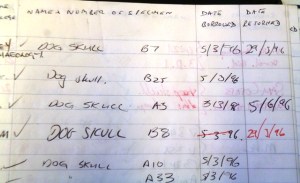 NAME & NUMBER OF SPECIMEN DATE BORROWED DATE RETURNED
✓ DOG SKULL B7 5/3/96 29/3/96
✓ Dog skull. B25 5/3/96
✓ DOG SKULL A3 5/3/96 5/6/96
✓ DOG SKULL B8 5-3-96 21/3/96
✓ DOG SKULL A10 5/3/96
" A33 5/3/96